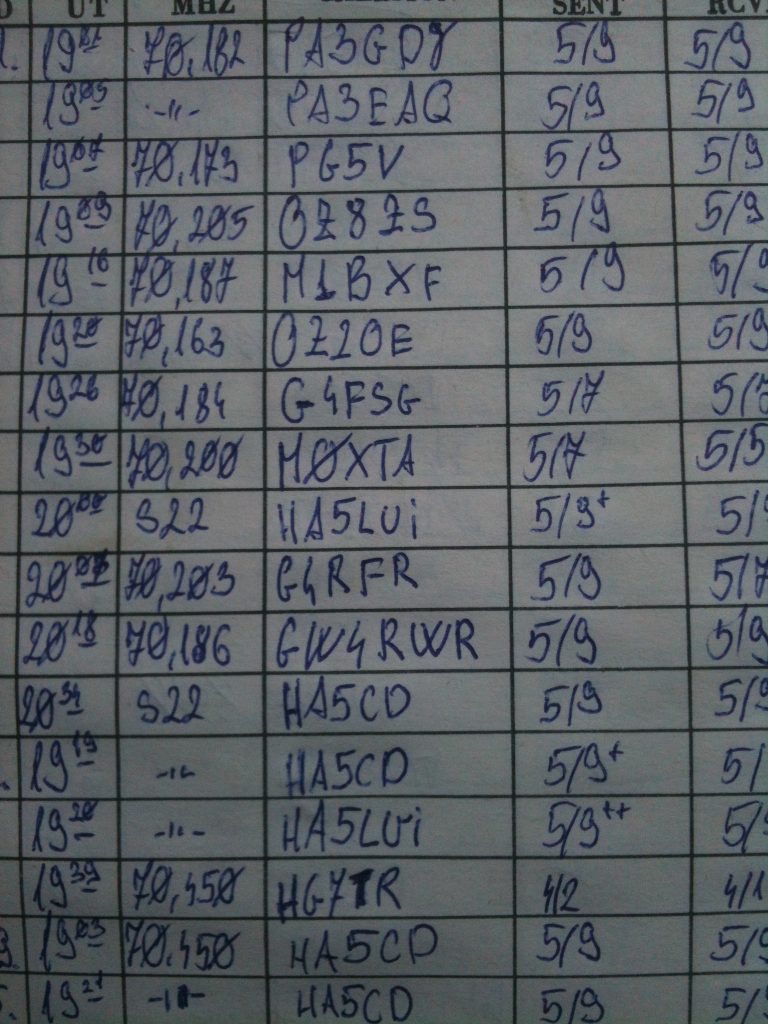 UT MHZ SENT
19 70,182 PA3GD? 5/9 5/9
19 05 -"- PA3EAQ 5/9 5/9
19 07 70,173 PG5V 5/9 5/9
19 09 70,205 OZ8ZS 5/9 5/9
19 16 70,187 M1BXF 5/9 5/9
19 20 70,163 OZ2OE 5/9 5/9
19 26 70,184 G4FSG 5/7 5/7
19 30 70,200 MØXTA 5/7 5/5
20 00 S22 HA5LUi 5/9+ 5/
20 70,203 G4RFR 5/9 5/7
20 18 70,186 GW4RWR 5/9 5/9
20 34 S22 HA5CD 5/9 5/9
19 19 -"- HA5CD 5/9+ 5/
19 20 -"- HA5LUi 5/9++ 5/
19 39 70,450 HG7TR 4/2 4/1
19 03 70.450 HA5CD 5/9 5/9
19 21 -"- HA5CD 5/9 5/